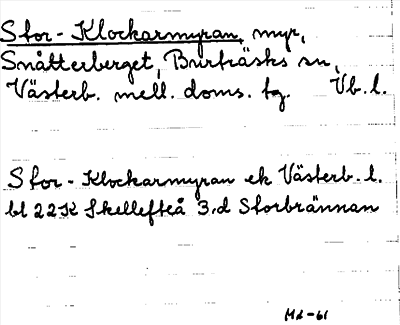 Stor-Klockarmyran, myr,
Snåtterberget, Burträsks sn,
Västerb. mell. doms. tg. Vb. l.
Stor-Klockarmyran ek Västerb. l.
bl 22K Skellefteå 3.d Storbrännan
Md-61